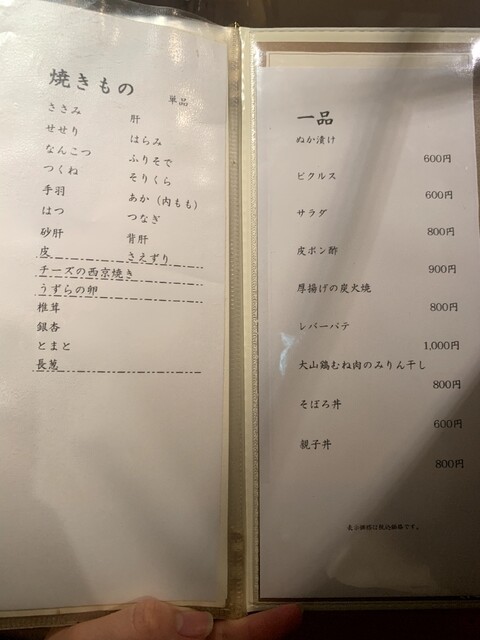 焼きもの
単品
ささみ
せせり
なんこつ
つくね
手羽
はつ
砂肝
皮
肝
はらみ
ふりそで
そりくら
あか（内もも）
つなぎ
背肝
さえずり
チーズの西京焼き
うずらの卵
椎茸
銀杏
とまと
長葱
一品
ぬか漬け
600円
ピクルス
600円
サラダ
800円
皮ポン酢
900円
厚揚げの炭火焼
800円
レバーパテ
1,000円
大山鶏むね肉のみりん干し
800円
そぼろ丼
600円
親子丼
800円
表示価格は税込価格です。